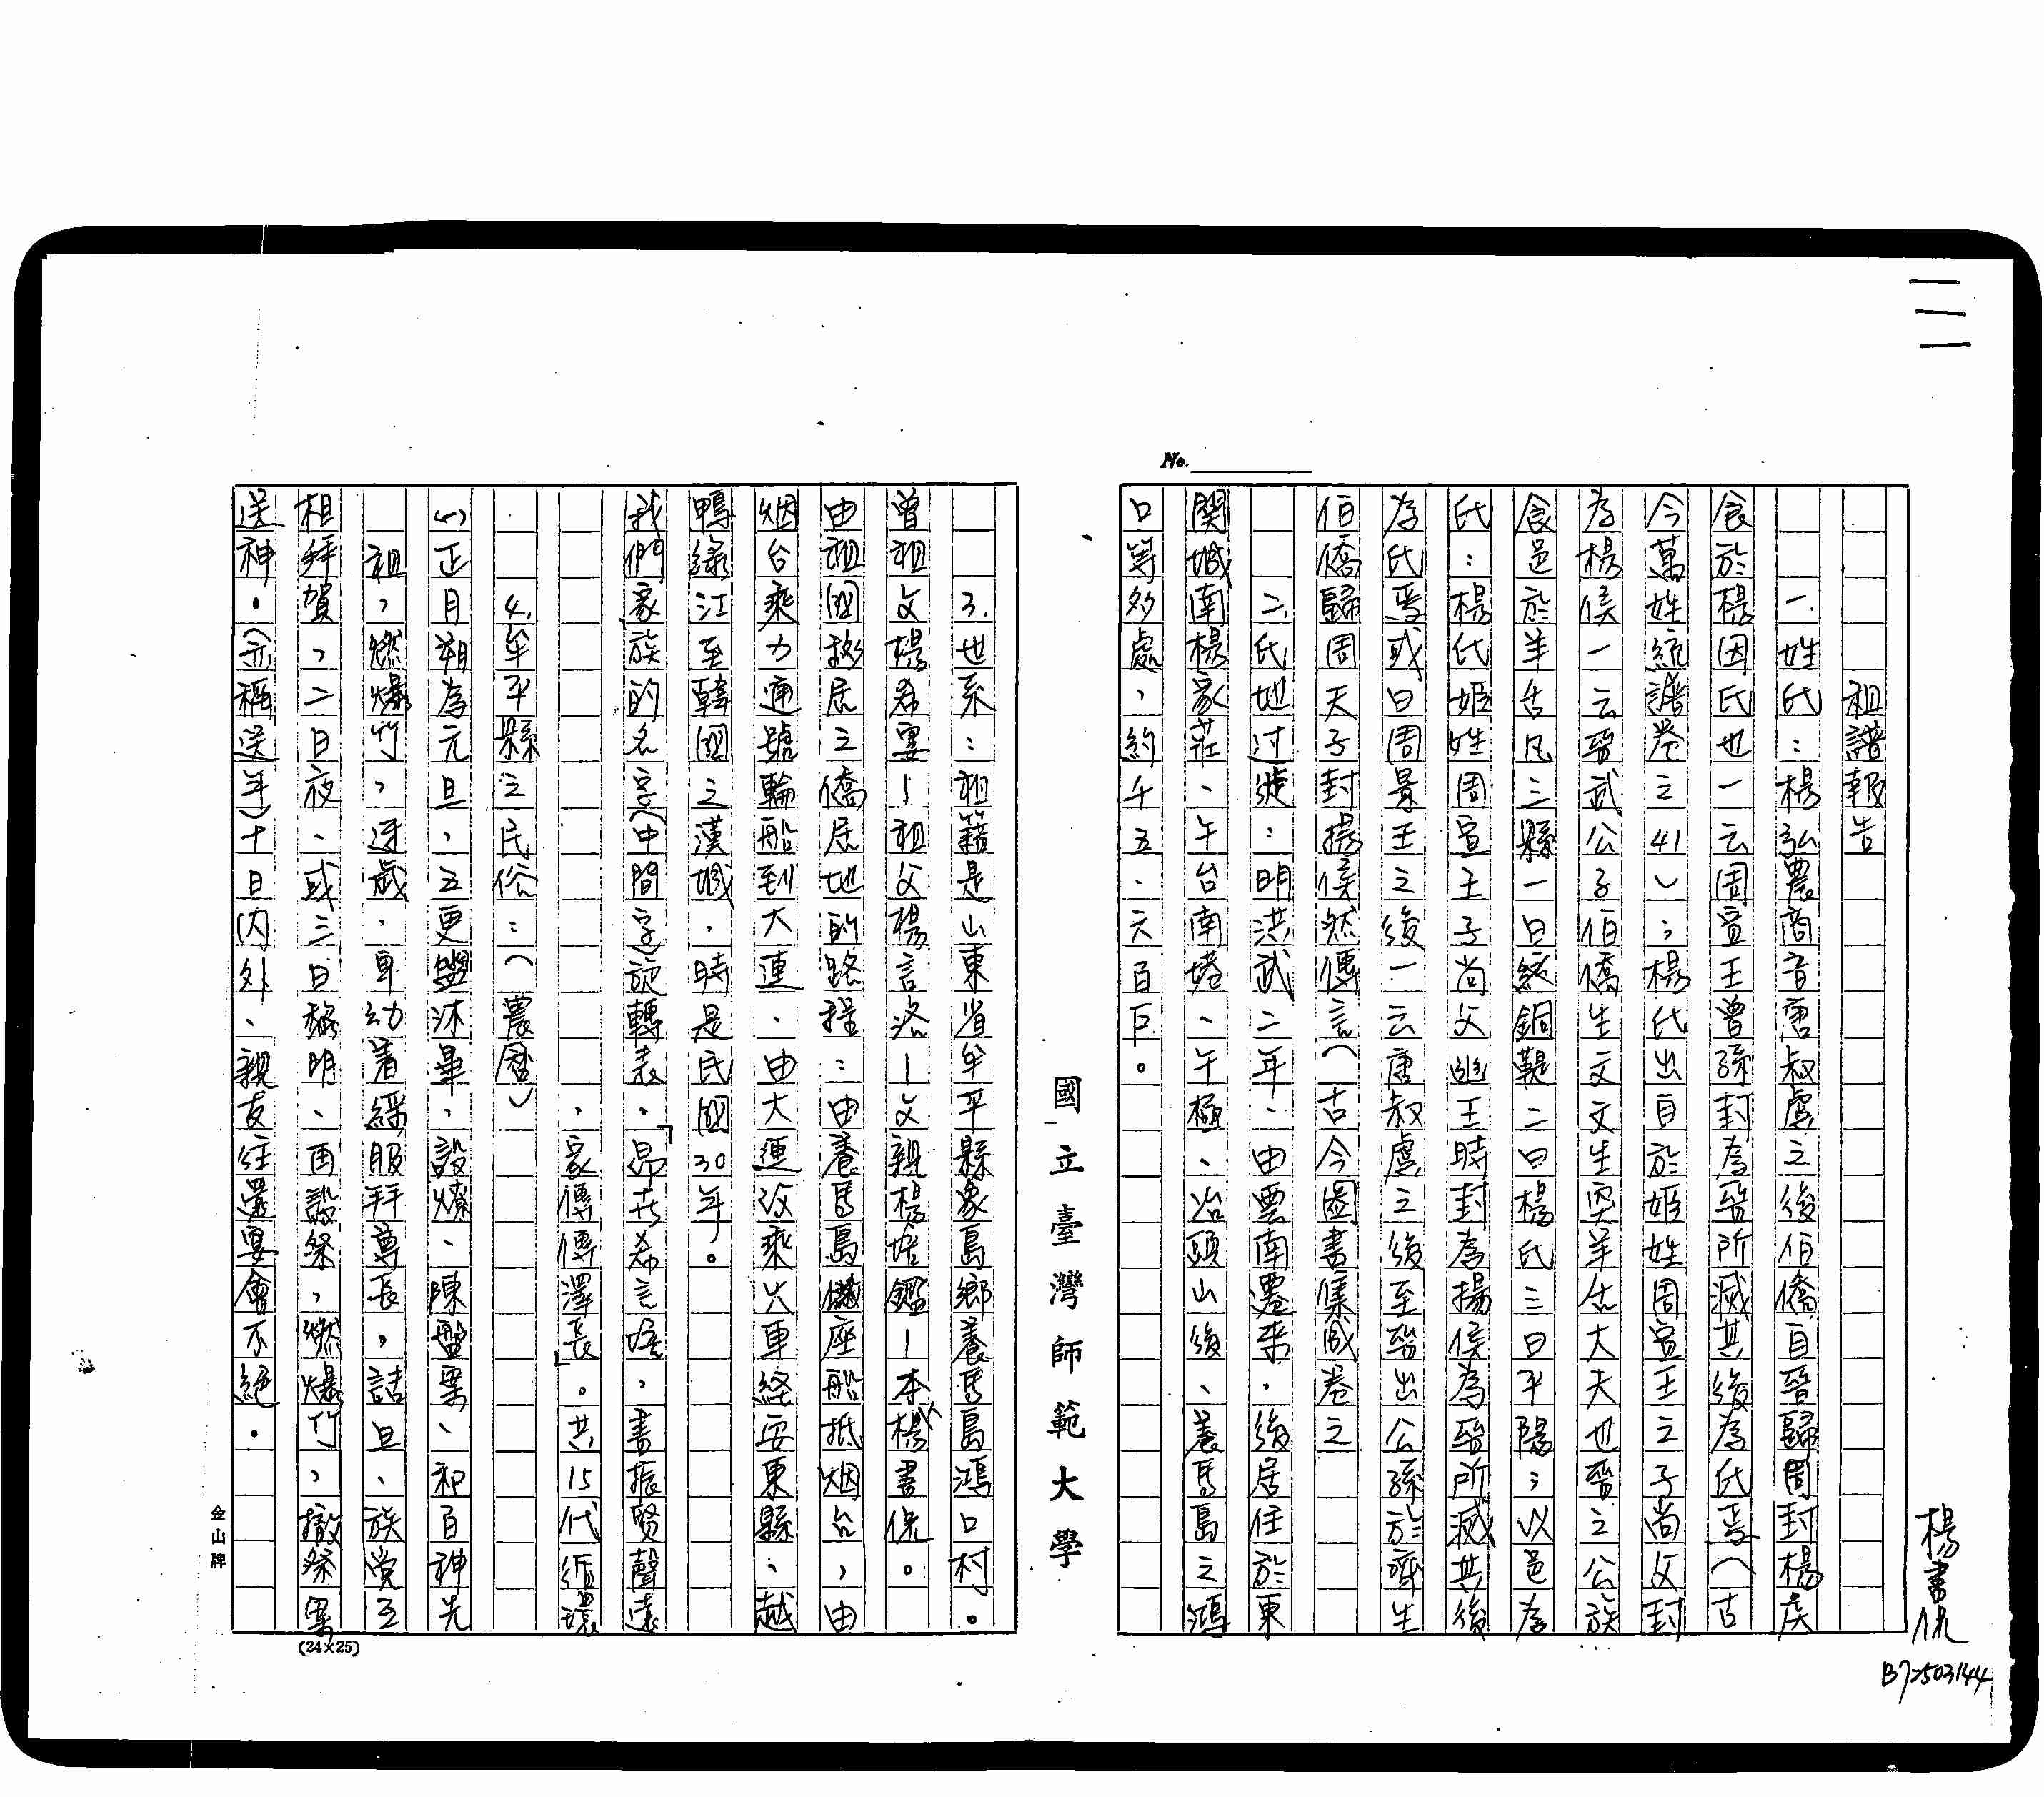 楊書侃
B72503144
No.
祖譜報告
一.姓氏：楊弘農商音唐叔虞之後伯僑自晉歸周封楊侯
食於楊因氏也一云周宣王曾孫封為晉所滅其後為氏焉(古
今萬姓統譜卷之41)；楊氏出自於姬姓周宣王之子尚父封
為楊侯一云晉武公子伯僑生文文生突羊舌大夫也晉之公族
食邑於羊舌凡三縣一曰銅鞮二曰楊氏三曰平陽；以邑為
氏：楊氏姬姓周宣王子尚父幽王時封為揚侯為晉所滅其後
為氏焉或曰周景王之後一云唐叔虞之後至晉出公孫於齊生
伯僑歸周天子封揚侯然傳言(古今圖書集成卷之
二.氏地过徙：明洪武二年、由雲南遷來，後居住於東
関城南楊家莊、午台南塂、午極、冶頭山後、養馬島之鴻
口等多處，約千五、六百戶。
國立臺灣師範大學
3.世系：祖籍是山東省牟平縣象島鄉養馬島鴻口村。
曾祖父楊希宴—祖父楊言洛—父親楊培鑑—本人楊書侃。
由祖国移居之僑居地的路程：由養馬島儀座船抵烟台，由
烟台乘力通號輪船到大連、由大連改乘火車經安東縣、越
鴨綠江至韓国之漢城，時是民国30年。
我們家族的名字(中間字)旋轉表，「昂喜希言培，書振賢聲遠
，家傳傳澤長」。共15代循環
4.牟平縣之民俗：(農曆)
(一)正月朔為元旦，五更盥沐畢，設燎、陳盤棗、祀百神先
祖，燃爆竹，迓歲，卑幼着綵服拜尊長，詰旦、族党互
相拜賀，二日夜、或三日黎明、再設祭，燃爆竹，撤祭畧
送神。(亦稱送年)十日内外、親友往還宴會不絕。
金山牌
(24×25)